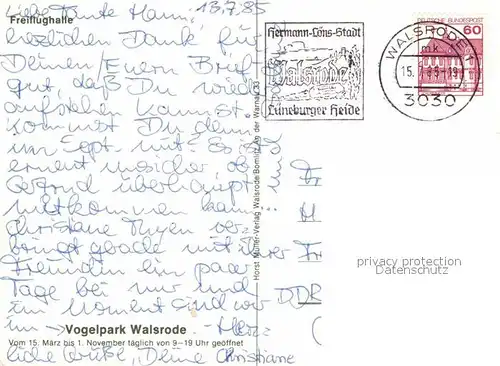 13.7.85
Liebe Tante Hanni,
Freiflughalle
herzlichen Dank für
Deinen/Euer Brief
gut, daß Du wieder
aufstehen kannst.
Kommst Du denn
im Sept. mit? Es ist
erneut unsicher, ob
Gerand überhaupt
mitkommen kann.
Christiane Thyen ver-
bringt gerade mit ihrer
Freundin ein paar
Tage bei mir und
im Moment sind wir
im → Vogelpark Walsrode - Herz-
Vom 15. März bis 1. November täglich von 9–19 Uhr geöffnet
liche Grüße, Deine Christiane
Horst Müller-Verlag Walsrode/Bomlitz An der Warnau
Hermann-Löns-Stadt
Walsrode
Lüneburger Heide
WALSRODE
mk
15.7.85-19
3030
DEUTSCHE BUNDESPOST
60
DDR
privacy protection
Datenschutz